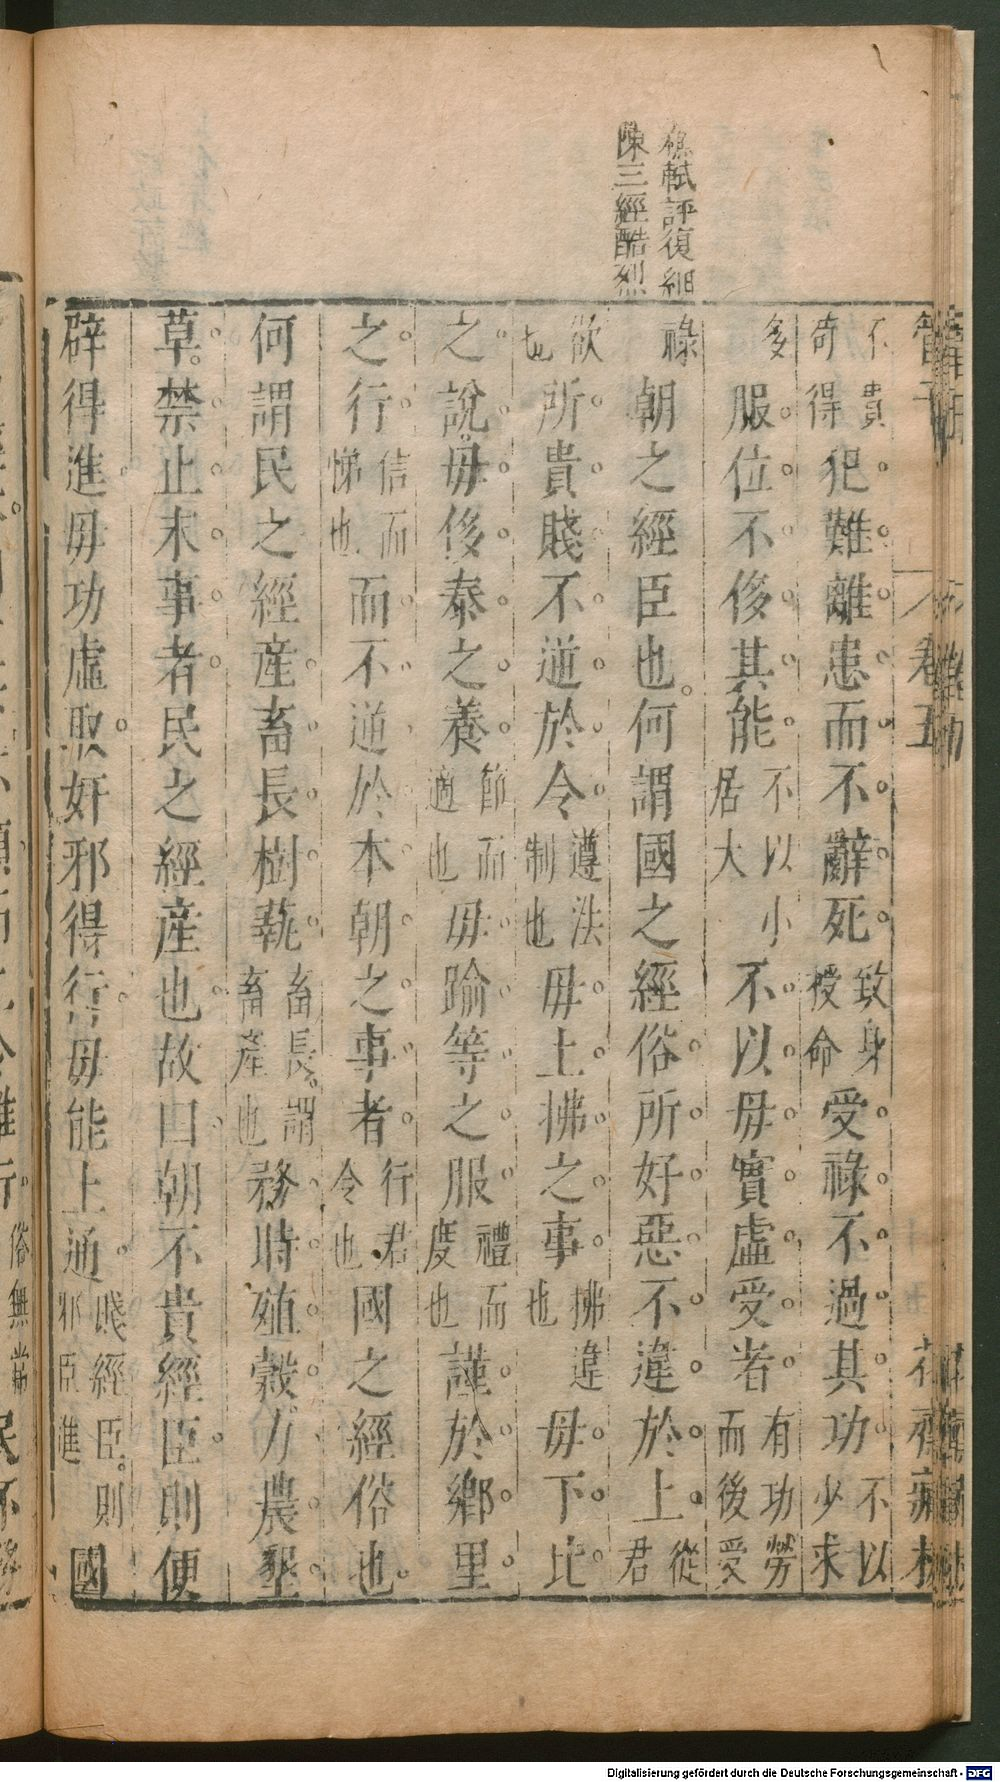 穆軾評復細
陳三經酷烈
管子 卷五 花齋藏板
不貴奇得犯難離患而不辭死致身授命受祿不過其功不以少求
多服位不侈其能不以小居大不以毋實虛受者有功勞而後受
祿朝之經臣也何謂國之經俗所好惡不違於上從君
欲也所貴賤不逆於令遵法制也毋上拂之事拂違也毋下比
之說毋侈泰之養節而適也毋踰等之服禮而度也謹於鄉里
之行信而悌也而不逆於本朝之事者行君令也國之經俗也
何謂民之經產畜長樹蓺畜長謂畜產也務時殖穀力農墾
草禁止末事者民之經產也故曰朝不貴經臣則便
辟得進毋功虛取奸邪得行毋能上通賤經臣則邪臣進國
俗無常民不
Digitalisierung gefördert durch die Deutsche Forschungsgemeinschaft - DFG